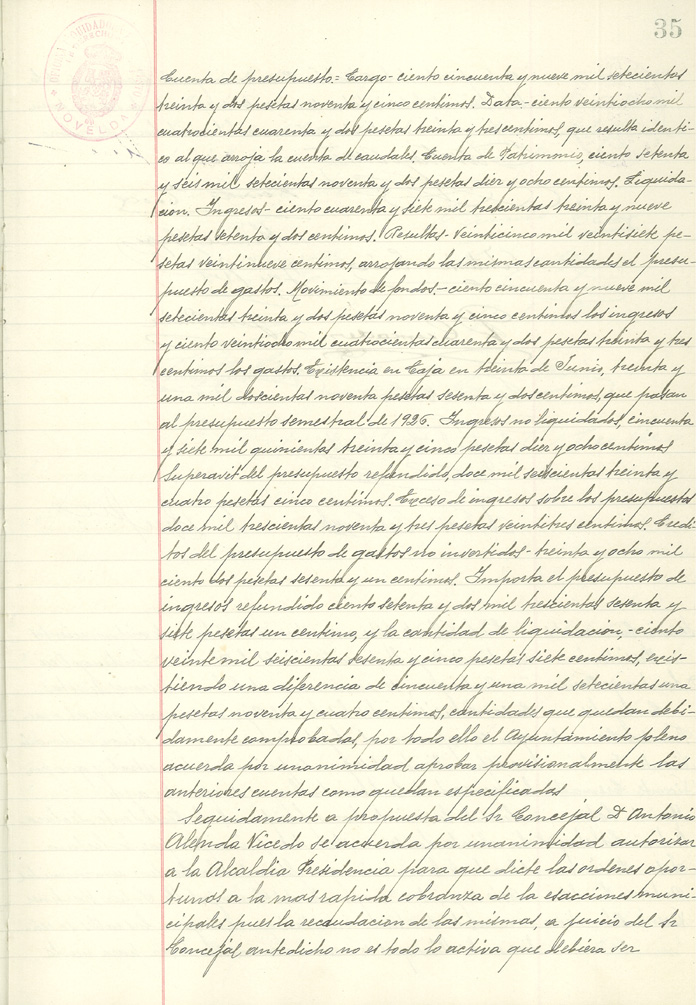 35
NOVELDA
Cuenta de presupuesto.= Cargo- ciento cincuenta y nueve mil setecientas
treinta y dos pesetas noventa y cinco centimos. Data- ciento veintiocho mil
cuatrocientas cuarenta y dos pesetas treinta y tres centimos, que resulta identi-
co al que arroja la cuenta de caudales. Cuenta de Patrimonio, ciento setenta
y seis mil setecientas noventa y dos pesetas diez y ocho centimos. Liquida-
cion. Ingresos- ciento cuarenta y siete mil trescientas treinta y nueve
pesetas setenta y dos centimos. Resultas- veinticinco mil veintisiete pe-
setas veintinueve centimos, arrojando las mismas cantidades el presu-
puesto de gastos. Movimiento de fondos.- ciento cincuenta y nueve mil
setecientas treinta y dos pesetas noventa y cinco centimos los ingresos
y ciento veintiocho mil cuatrocientas cuarenta y dos pesetas treinta y tres
centimos los gastos. Existencia en Caja en treinta de Junio, treinta y
una mil doscientas noventa pesetas sesenta y dos centimos, que pasan
al presupuesto semestral de 1926. Ingresos no liquidados, cincuenta
y siete mil quinientas treinta y cinco pesetas diez y ocho centimos
Superavit del presupuesto refundido, doce mil seiscientas treinta y
cuatro pesetas cinco centimos. Exceso de ingresos sobre los presupuestos
doce mil trescientas noventa y tres pesetas veintitres centimos. Credi-
tos del presupuesto de gastos no invertidos- treinta y ocho mil
ciento dos pesetas sesenta y un centimos. Importa el presupuesto de
ingresos refundido ciento setenta y dos mil trescientas sesenta y
siete pesetas un centimo, y la cantidad de liquidacion,- ciento
veinte mil seiscientas sesenta y cinco pesetas siete centimos, exis-
tiendo una diferencia de cincuenta y una mil setecientas una
pesetas noventa y cuatro centimos, cantidades que quedan debi-
damente comprobadas, por todo ello el Ayuntamiento pleno
acuerda por unanimidad aprobar provisionalmente las
anteriores cuentas como quedan especificadas
Seguidamente a propuesta del Sr Concejal Dn Antonio
Alenda Vicedo se acuerda por unanimidad autorizar
a la Alcaldia Presidencia para que dicte las ordenes opor-
tunas a la mas rapida cobranza de la exacciones muni-
cipales pues la recaudacion de las mismas, a juicio del Sr
Concejal antedicho no es todo lo activa que debiera ser